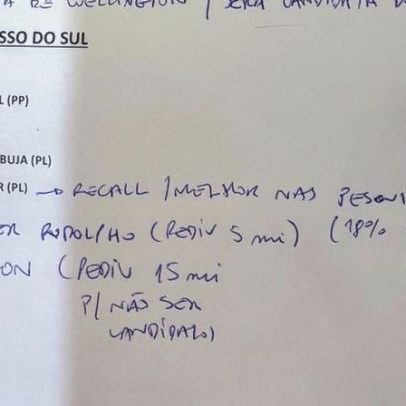 A DE WELLINGTON / SERÁ CANDIDATA
SSO DO SUL
L (PP)
BUJA (PL)
R (PL) → RECALL / MELHOR NAS PESQUI
RODOLPHO (PEDIU 5 mi) (18%
ON (PEDIU 15 mi
P/ NÃO SER
CANDIDATO)